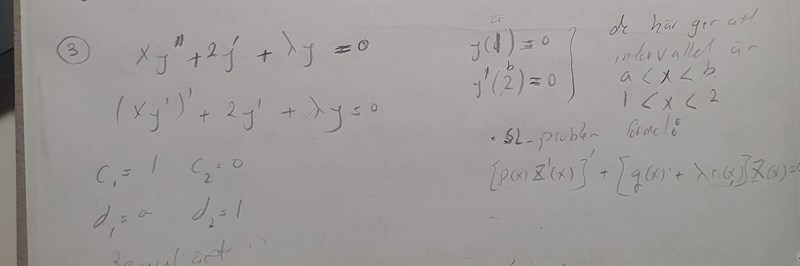 ③ xy'' + 2y' + λy = 0
(xy')' + 2y' + λy = 0
c₁ = 1 c₂ = 0
d₁ = 0 d₂ = 1
a
y(1) = 0
b
y'(2) = 0
de här ger att
intervallet är
a < x < b
1 < x < 2
• SL-problem formel:
[p(x) Z'(x)]' + [q(x) + λr(x)]Z(x) = 0